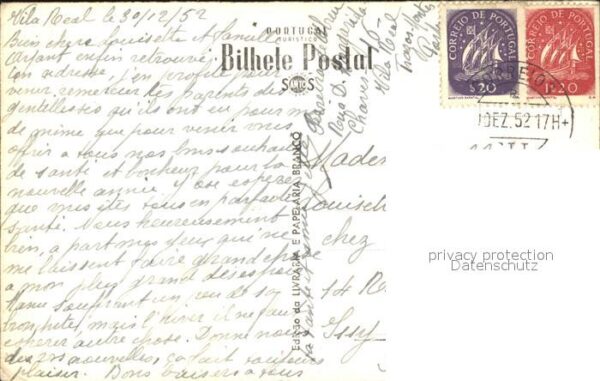 Vila Real le 30/12/52
Bien chère Louisette et famille
Ayant enfin retrouvé
ton adresse, j'en profite pour
venir remercier les parents des
gentillesses qu'ils ont eu pour moi
de même que pour venir vous
offrir a tous nos bons souhaits
de santé et bonheur pour la
nouvelle année. J'ose espérer
que vous êtes tous en parfaite
santé. Nous heureusement
bien, a part mes yeux qui ne
me laissent faire grand chose
a mon plus grand désespoir
Mame souffrant un peu de sa
bronchite, mais l'hiver il ne faut
espérer autre chose. Donne nous
des vos nouvelles, ça fait toujours
plaisir. Bons baisers a tous
PORTUGAL
TURÍSTICO
Bilhete Postal
Edição da LIVRARIA E PAPELARIA BRANCO
Vila Real
CORREIO DE PORTUGAL
$20
CORREIO DE PORTUGAL
1$20
DEZ.52 17H+
Louisette
chez
14 R
Issy
privacy protection
Datenschutz